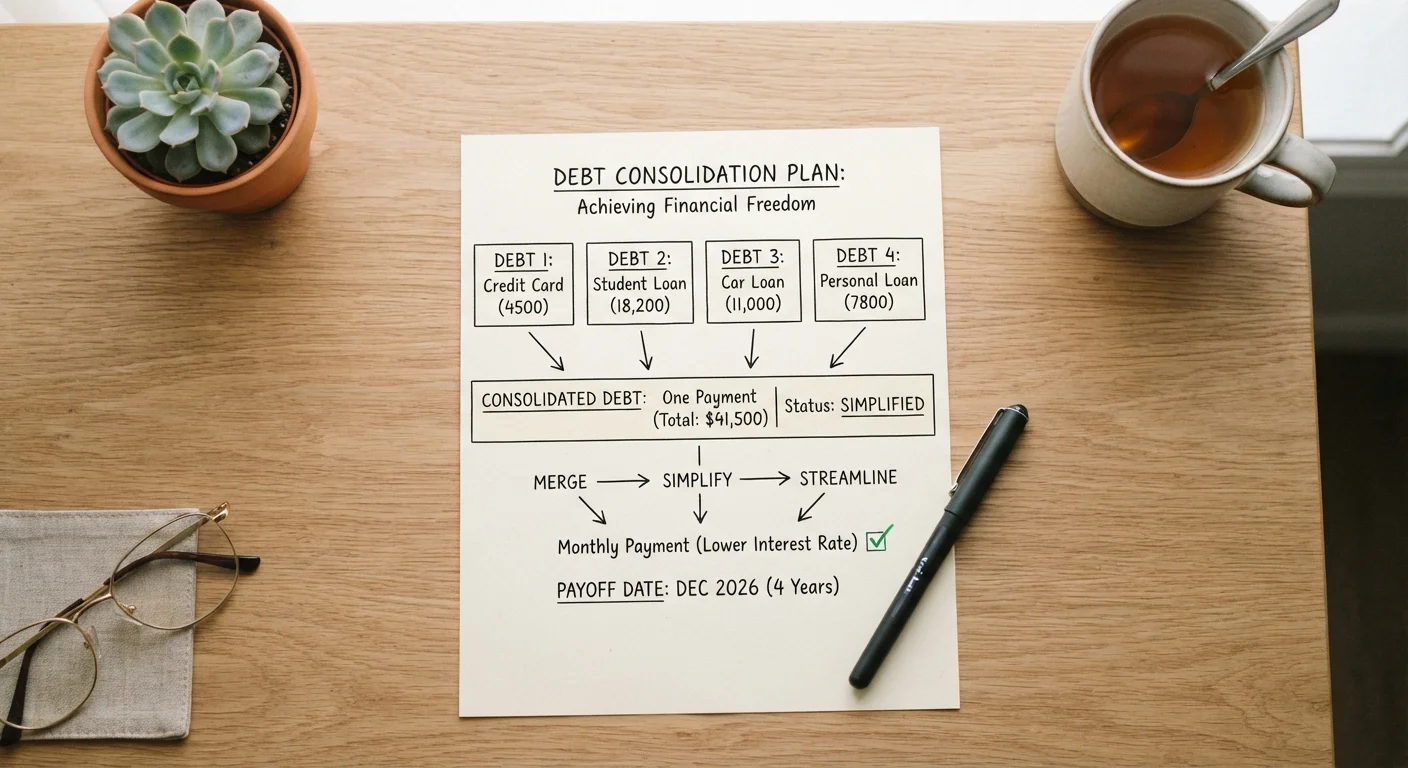 DEBT CONSOLIDATION PLAN:
Achieving Financial Freedom
DEBT 1:
Credit Card
(4500)
DEBT 2:
Student Loan
(18,200)
DEBT 3:
Car Loan
(11,000)
DEBT 4:
Personal Loan
(7800)
CONSOLIDATED DEBT: One Payment
(Total: $41,500)
Status: SIMPLIFIED
MERGE → SIMPLIFY → STREAMLINE
Monthly Payment (Lower Interest Rate) ☑
PAYOFF DATE: DEC 2026 (4 Years)